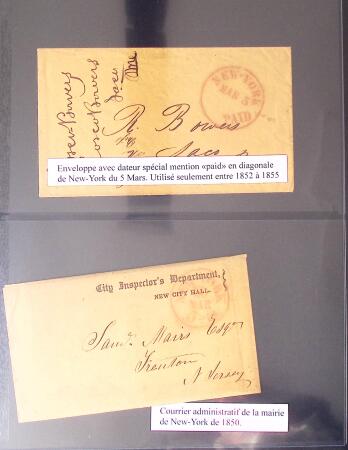 NEW-YORK
MAR 5
PAID
R. Bowers
Enveloppe avec dateur spécial mention «paid» en diagonale
de New-York du 5 Mars. Utilisé seulement entre 1852 à 1855
City Inspector's Department,
NEW CITY HALL.
MAR
Saml. Mairs Esqr
Trenton
N Jersey
Courrier administratif de la mairie
de New-York de 1850.